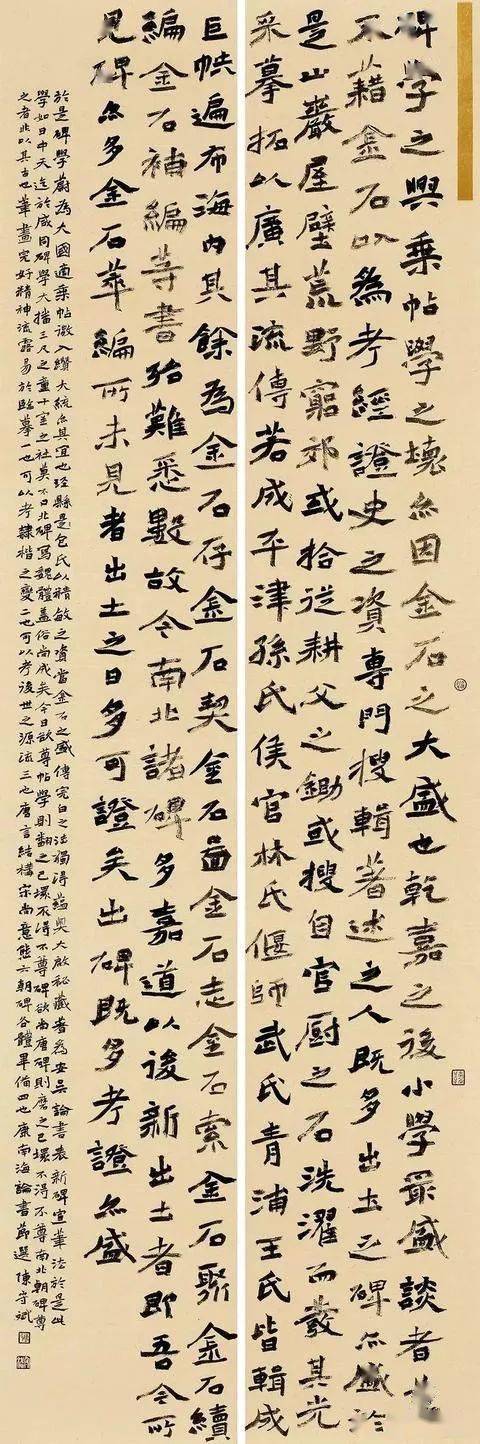 碑學之興乘帖學之壞亦因金石之大盛也乾嘉之後小學最盛談者莫
不藉金石以為考經證史之資專門搜輯著述之人既多出土之碑亦盛於
是山巖屋壁荒野窮郊或拾從耕父之鋤或搜自官廚之石洗濯而發其光
采摹拓以廣其流傳若成平津孫氏侯官林氏偃師武氏青浦王氏皆輯成
巨帙遍布海內其餘為金石存金石契金石圖金石志金石索金石聚金石續
編金石補編等書殆難悉數故今南北諸碑多嘉道以後新出土者即吾今所
見碑亦多金石萃編所未見者出土之日多可證矣出碑既多考證亦盛
於是碑學蔚為大國適乘帖微入纘大統亦其宜也涇縣是包氏以精敏之資當金石之盛傳完白之法獨得蘊奧大啟秘藏著為安吳論書表新碑宣筆法於是此
學如日中天迄於咸同碑學大播三尺之童十室之社莫不口北碑寫魏體蓋俗尚成矣今日欲尊帖學則翻之已壞不得不尊碑欲尚唐碑則磨之已壞不得不尊南北朝碑尊
之者非以其古也筆畫完好精神流露易於臨摹一也可以考隸楷之變二也可以考後世之源流三也唐言結構宋尚意態六朝碑各體畢備四也康南海論書節選陳守斌